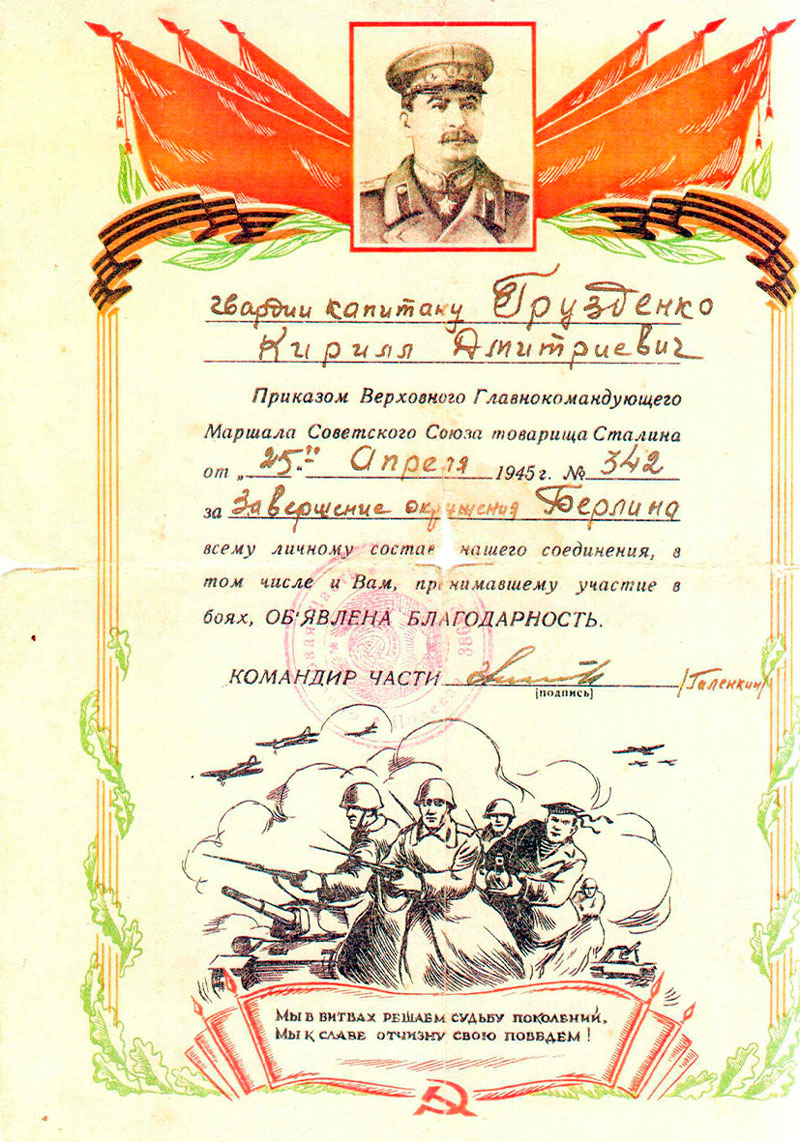 гвардии капитану Грузденко
Кирилл Дмитриевич
Приказом Верховного Главнокомандующего
Маршала Советского Союза товарища Сталина
от „25" Апреля 1945 г. № 342
за Завершение окружения Берлина
всему личному составу нашего соединения, в
том числе и Вам, принимавшему участие в
боях, ОБ'ЯВЛЕНА БЛАГОДАРНОСТЬ.
КОМАНДИР ЧАСТИ /Галенкин/
[подпись]
МЫ В БИТВАХ РЕШАЕМ СУДЬБУ ПОКОЛЕНИЙ,
МЫ К СЛАВЕ ОТЧИЗНУ СВОЮ ПОВЕДЕМ!